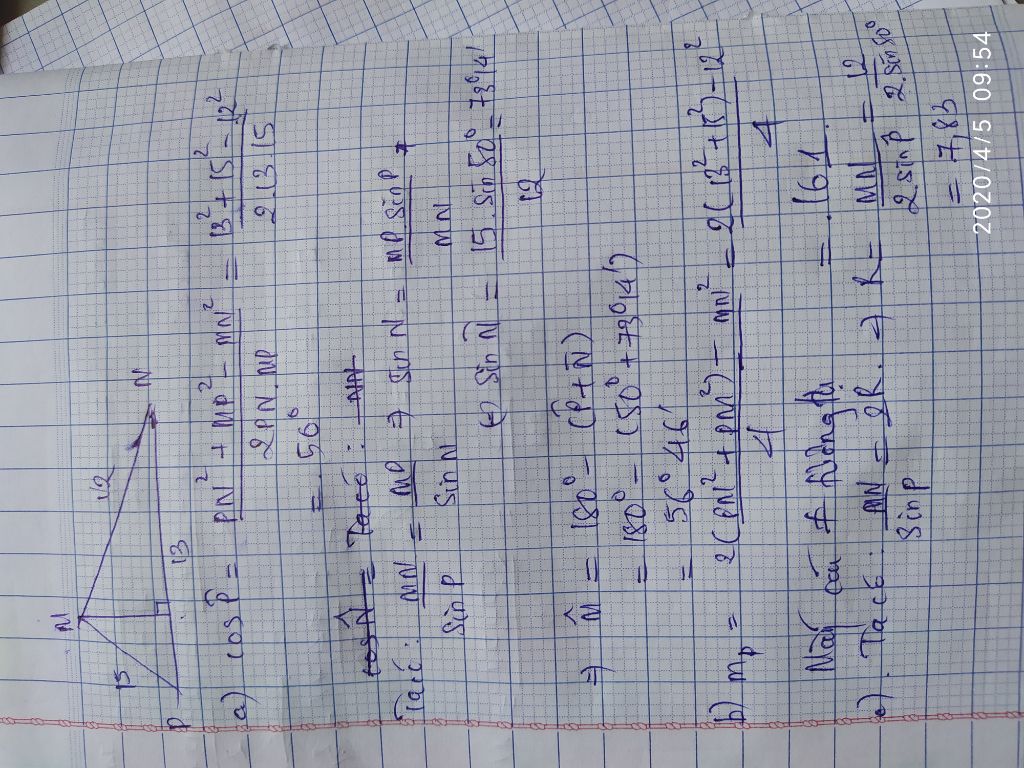 M
15
12
P
13
N
a) cos P̂ = PN² + MP² - MN² / 2PN.MP = 13² + 15² - 12² / 2.13.15
= 50°
cos N̂ = Ta có: MN
Ta có: MN / sin P = MP / sin N => sin N = MP.sin P / MN
(=) sin N̂ = 15.sin 50° / 12 = 73°14'
=> M̂ = 180° - (P̂ + N̂)
= 180° - (50° + 73°14')
= 56°46'
b) m_p = 2(PN² + PM²) - MN² / 4 = 2(13² + 15²) - 12² / 4
= 161.
c). Ta có: MN / sin P = 2R. => R = MN / 2 sin P̂ = 12 / 2.sin 50°
= 7,83
2020/4/5 09:54